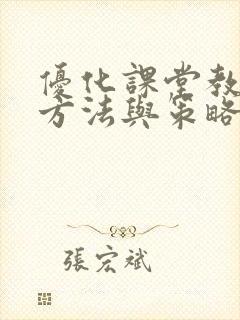 優化課堂教
方法與策略
張宏斌